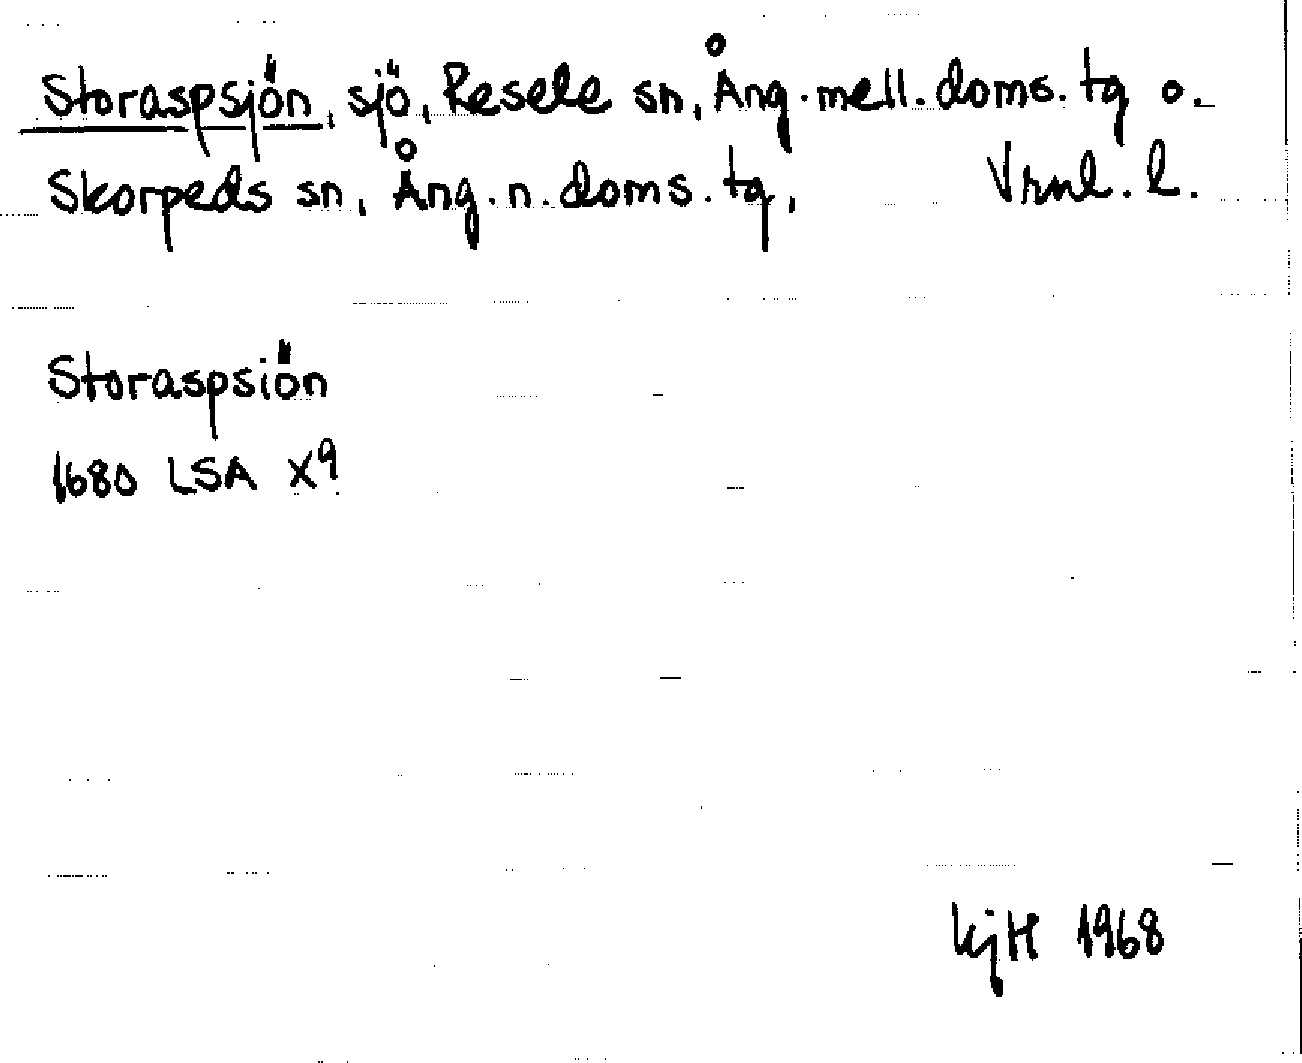 Storaspsjön, sjö, Resele sn, Ång. mell. doms. tg o.
Skorpeds sn, Ång. n. doms. tg, Vrnl. l.
Storaspsiön
1680 LSA X9
KjH 1968